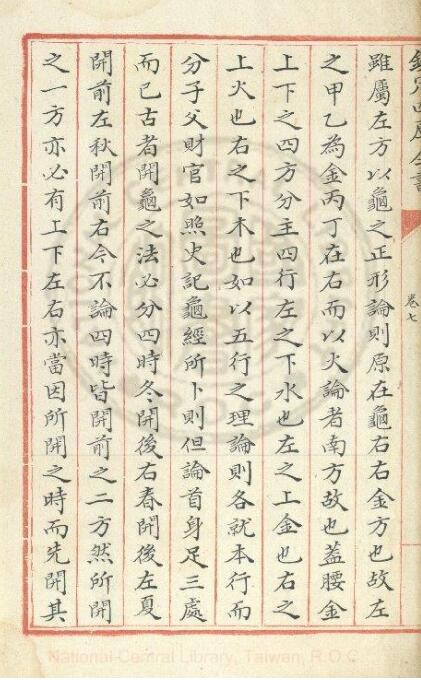 欽定四庫全書
卷七
雖屬左方以龜之正形論則原在龜右右金方也故左
之甲乙為金丙丁在右而以火論者南方故也蓋腰金
上下之四方分主四行左之下水也左之上金也右之
上火也右之下木也如以五行之理論則各就本行而
分子父財官如照史記龜經所卜則但論首身足三處
而已古者開龜之法必分四時冬開後右春開後左夏
開前左秋開前右今不論四時皆開前之二方然所開
之一方亦必有上下左右亦當因所開之時而先開其
National Central Library, Taiwan, R.O.C